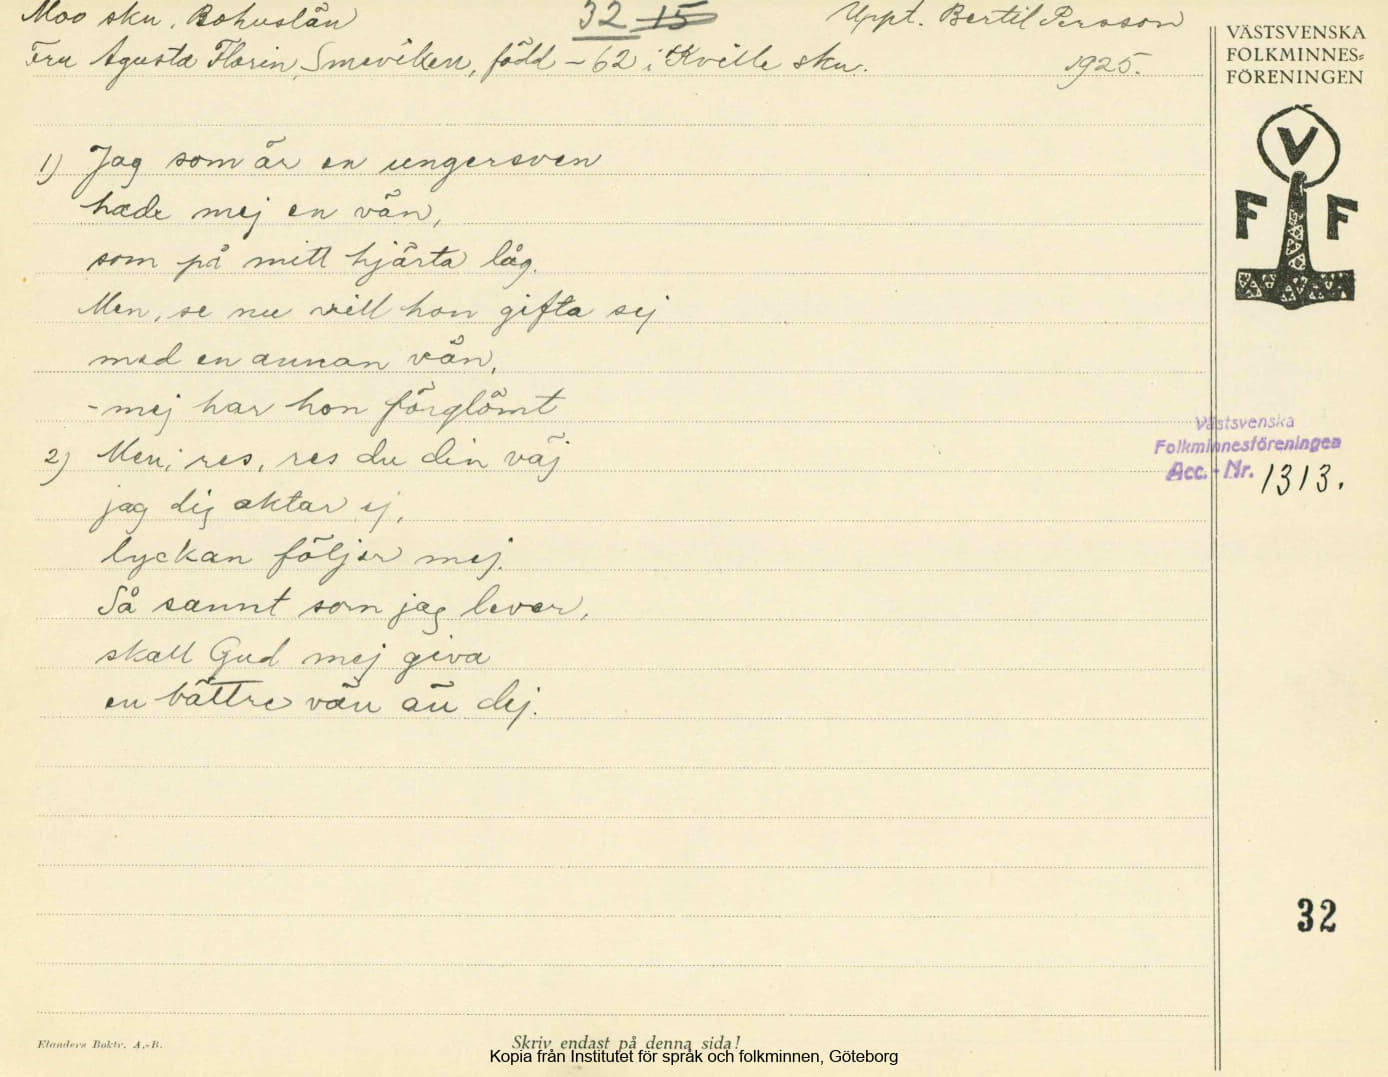 Moo skn, Bohuslän 32 15 Uppt. Bertil Persson
Fru Agusta Florin, Smeviken, född -62 i Kville skn. 1925.
VÄSTSVENSKA
FOLKMINNES=
FÖRENINGEN
V
F F
1) Jag som är en ungersven
hade mej en vän,
som på mitt hjärta låg.
Men, se nu vill hon gifta sej
med en annan vän,
-mej har hon förglömt
2) Men, res, res du din väj
jag dig aktar ej,
lyckan följer mej.
Så sannt som jag lever,
skall Gud mej giva
en bättre vän än dej.
Västsvenska
Folkminnesföreningen
Acc. - Nr. 1313.
32
Elanders Boktr. A.-B.
Skriv endast på denna sida!
Kopia från Institutet för språk och folkminnen, Göteborg